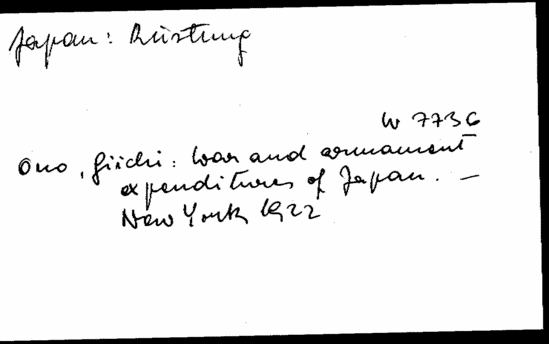 Japan: Rüstung
W 7736
Ono, Giichi: War and armament
expenditures of Japan. –
New York 1922